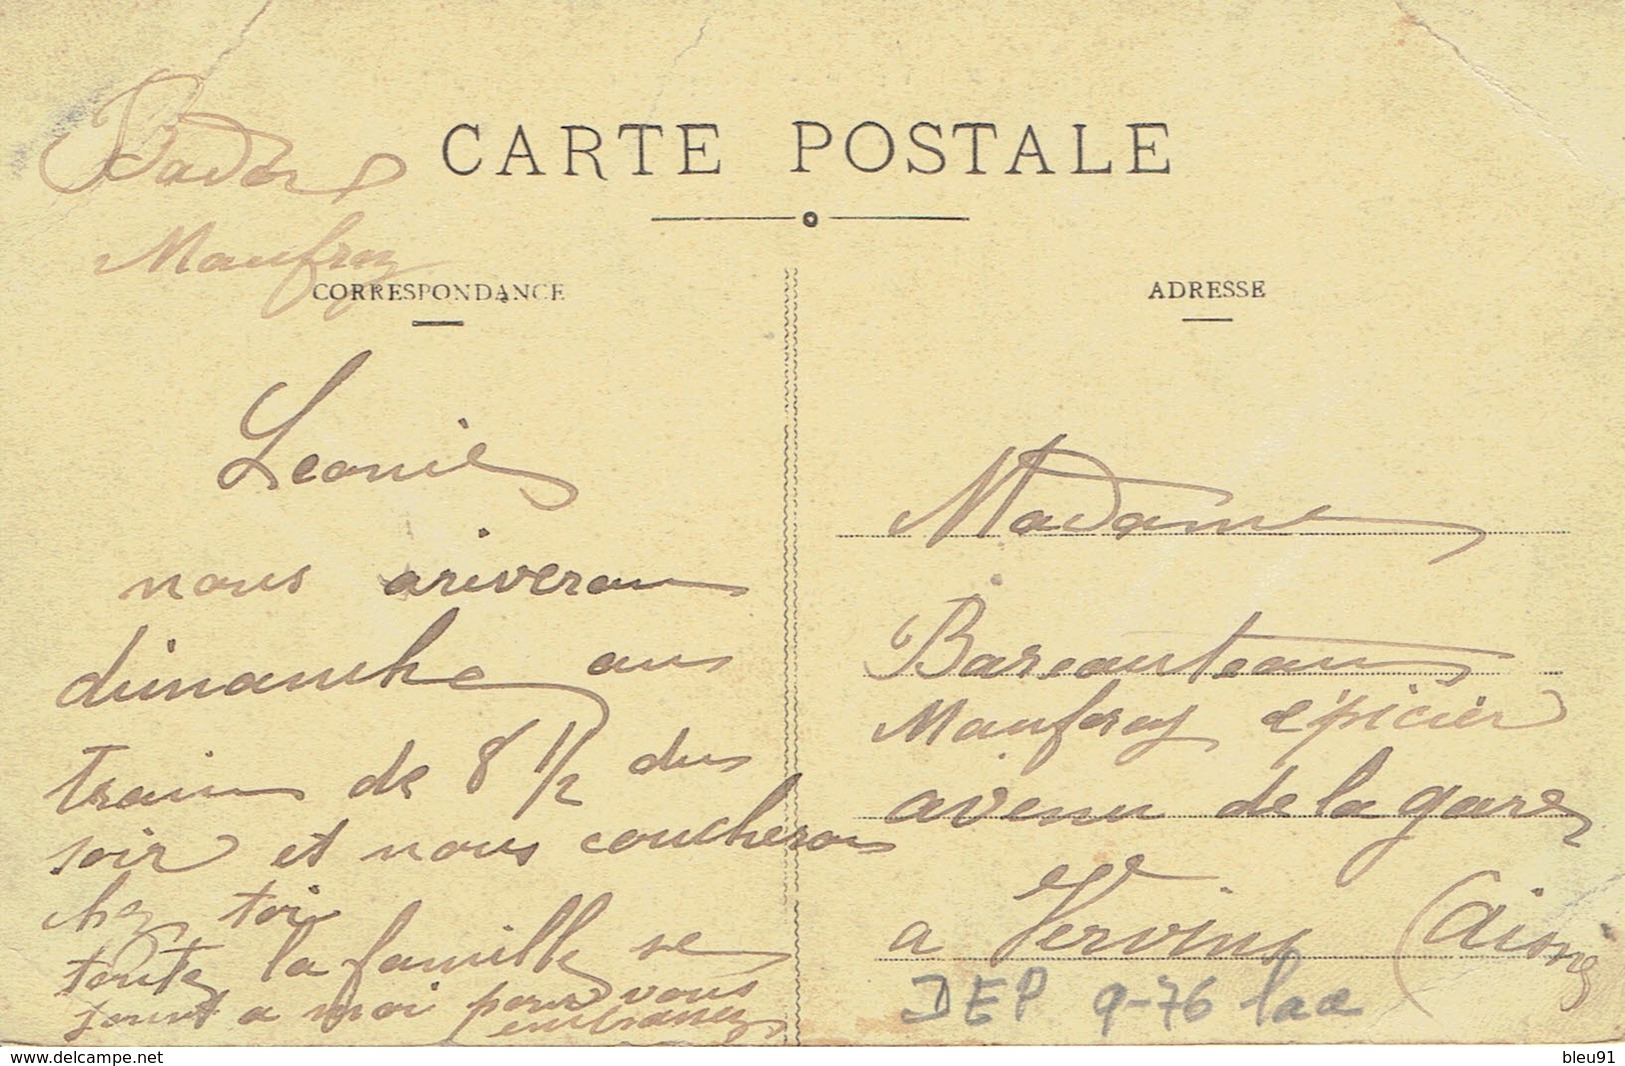 CARTE POSTALE
Manfroy
CORRESPONDANCE
Leonie
nous ariveron
dimanche au
train de 8 1/2 du
soir et nous coucheron
chez toi
toute la famille se
joint a moi pour vous
embrasser
ADRESSE
Madame
Manfroy épicier
avenu de la gare
a Vervins (Aisne)
DEP 9-76
www.delcampe.net
bleu91